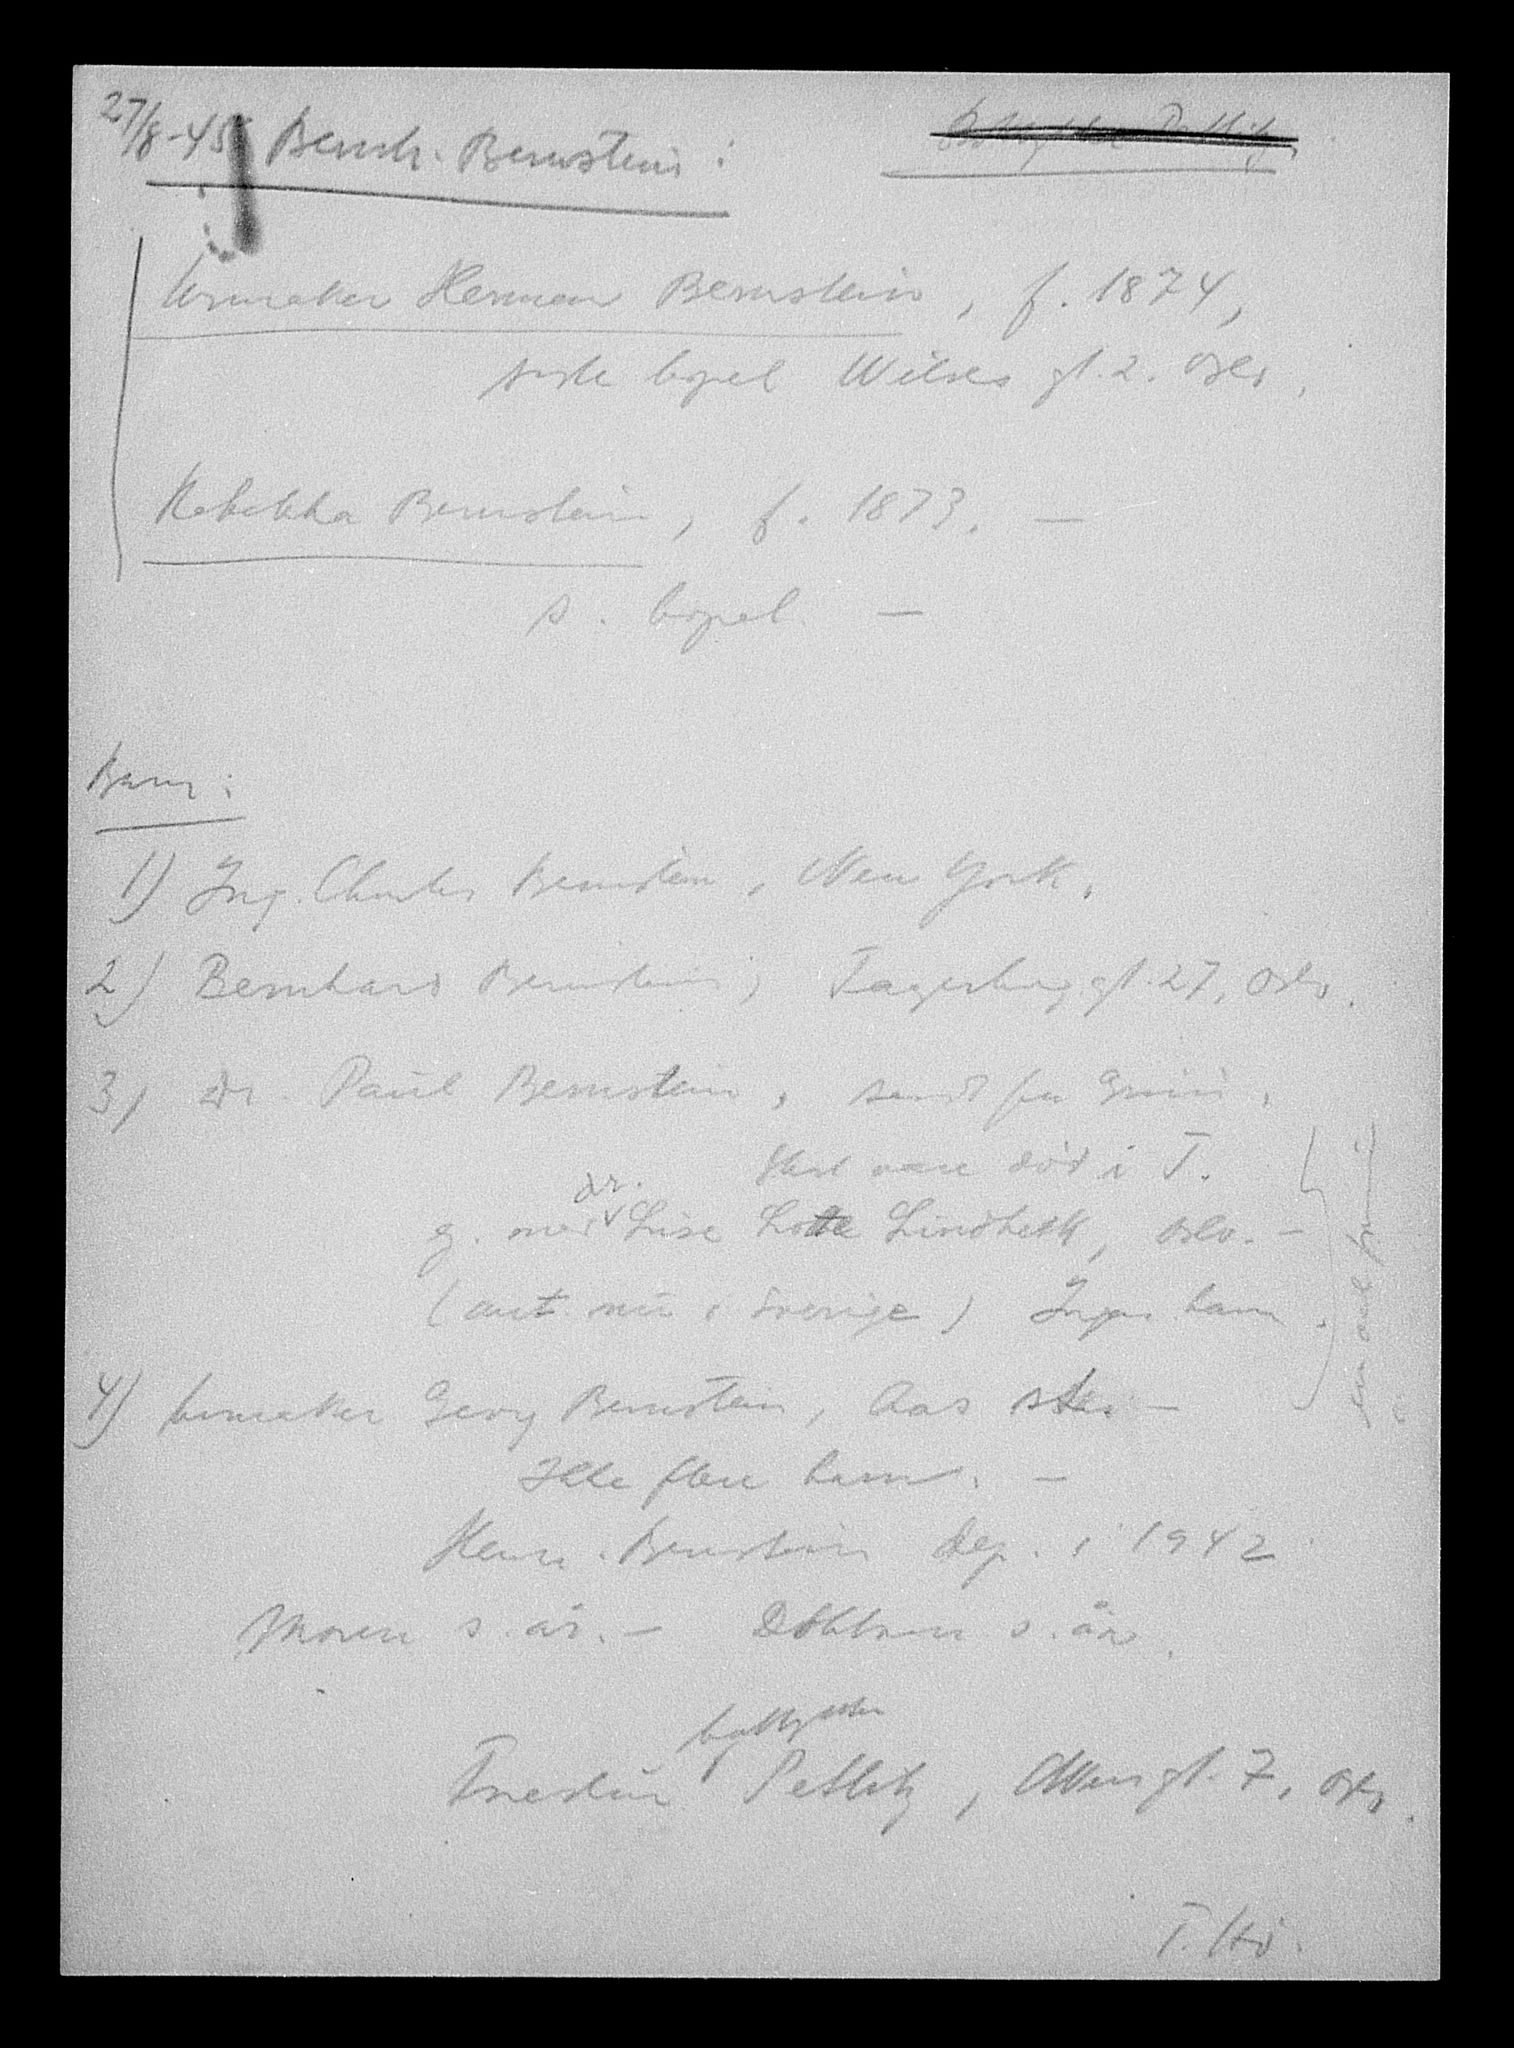 27/8-45 Bernh. Bernstein:
Urmaker Herman Bernstein, f. 1874,
siste bopel Wilses gt. 2. Oslo.
Rebekka Bernstein, f. 1873. —
s. bopel. —
Barn:
1) Ing. Charles Bernstein, New York.
2) Bernhard Bernstein, Fagerborg gt. 27, Oslo.
3) Dr. Paul Bernstein, sendt fra Grini.
Skal være död i T.
g. med dr. Lise Lotte Lindbekk, Oslo. —
(ant. nu i Sverige) Ingen barn.
4) Urmaker Georg Bernstein, Aas st. —
Ikke flere barn. —
Herm. Bernstein dep. i 1942
Moren s. år. — Datteren s. år.
Pettlitz, gt. 7, Oslo.
T. Hö.